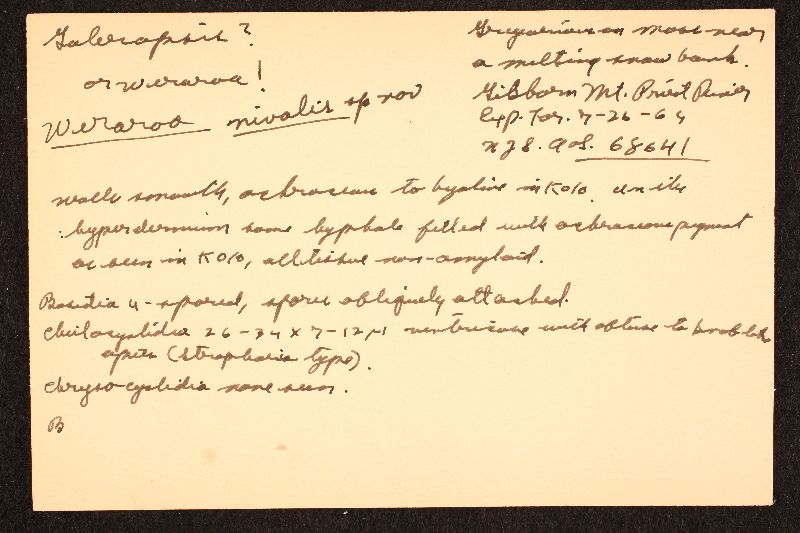 Galeropsis?
or weraroa!
Weraroa nivalis sp nov
Gregarious on moss near
a melting snow bank.
Gisborn Mt. Priest River
Exp. For. 7-26-64
AHS. 68641
walls smooth, ochraceous to hyaline in KOH. In the
hypodermium some hyphae filled with ochraceous pigment
as seen in KOH, all tissue non-amyloid.
Basidia 4-spored, spores obliquely attached.
Cheilocystidia 26-34 x 7-12 µ ventricose with obtuse to
apex (Stropharia type).
Chrysocystidia none seen.
B